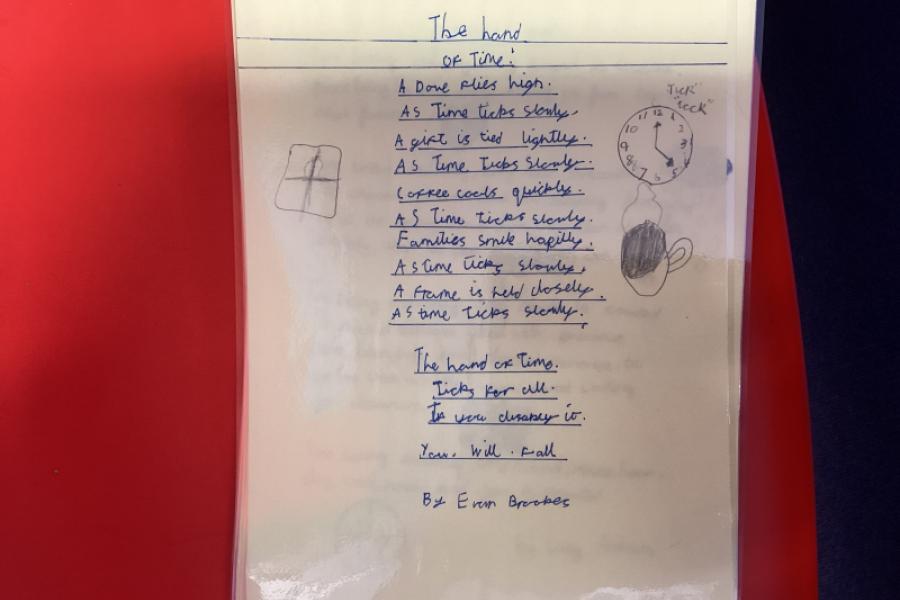 The hand
OF Time!
A Dove Flies high.
AS Time ticks slowly.
A gift is tied lightly.
AS Time Ticks Slowly.
Coffee cools quickly.
AS Time ticks slowly.
Families smile hapilly.
AS time ticks slowly.
A frame is held closely.
AS time ticks slowly.
The hand of Time.
Ticks for all.
If you disobey it.
You. Will. Fall
By Evan Brookes
"TICK"
"TOCK"
12
1
2
3
4
5
6
7
8
9
10
11